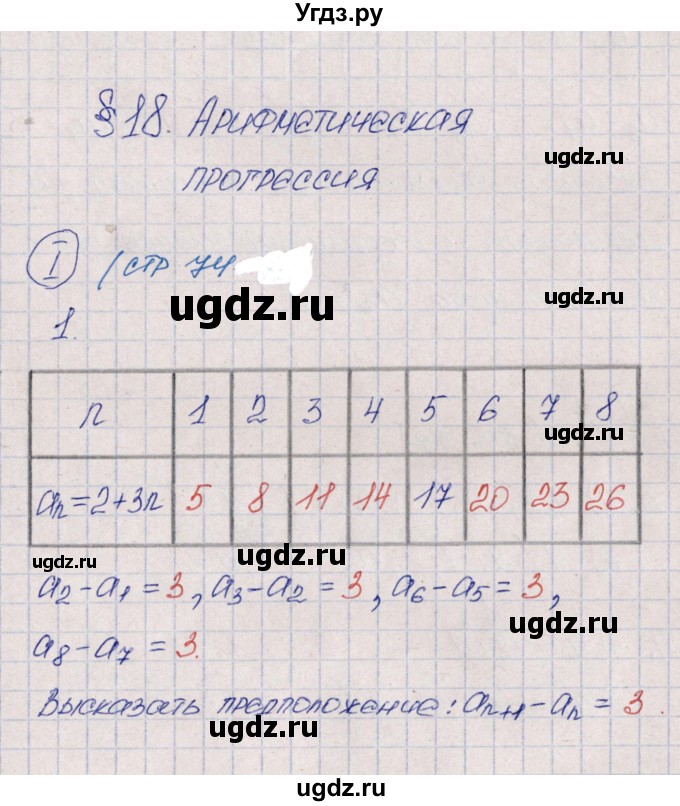 Угдз.ру
§18. Арифметическая
ugdz.ru
прогрессия
I (стр 74
ugdz.ru
ugdz.ru
1.
n 1 2 3 4 5 6 7 8
ugdz.ru
aₙ=2+3n 5 8 11 14 17 20 23 26
ugdz.ru
ugdz.ru
a₂-a₁=3, a₃-a₂=3, a₆-a₅=3,
ugdz.ru
a₈-a₇=3.
Высказать предположение: aₙ₊₁-aₙ=3.
ugdz.ru
ugdz.ru
ugdz.ru